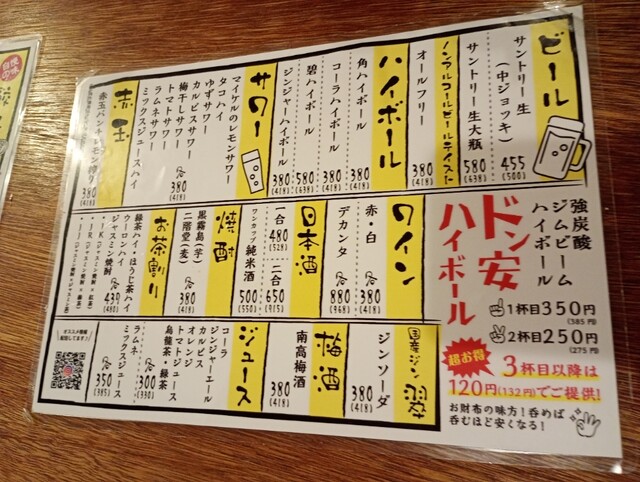 ビール
サントリー生
(中ジョッキ)
455
(500)
サントリー生大瓶
580
(638)
ノンアルコールビールテイスト
オールフリー
380
(418)
ハイボール
角ハイボール
380
(418)
コーラハイボール
380
(418)
碧ハイボール
580
(638)
ジンジャーハイボール
380
(418)
サワー
マイケルのレモンサワー
タコハイ
ゆずサワー
カルピスサワー
梅干しサワー
トマトサワー
ラムネサワー
ミックスジュースハイ
各380
(418)
赤玉
赤玉パンチ
380
(418)
ワイン
赤・白
各380
(418)
デカンタ
各880
(968)
日本酒
一合
480
(528)
二合
650
(715)
ワンカップ純米酒
500
(550)
焼酎
黒霧島(芋)
二階堂(麦)
各380
(418)
お茶割り
緑茶ハイ・ほうじ茶ハイ
ウーロンハイ
ジャスミン焼酎
国産ジン 翠
ジンソーダ
380
(418)
梅酒
南高梅酒
380
(418)
ジュース
コーラ
ジンジャーエール
カルピス
オレンジ
トマトジュース
烏龍茶・緑茶
各300
(330)
ラムネ
ミックスジュース
各350
(385)
強炭酸
ジムビーム
ハイボール
ドン安
ハイボール
1杯目350円
(385円)
2杯目250円
(275円)
超お得
3杯目以降は
120円(132円)でご提供!
お財布の味方!呑めば
呑むほど安くなる!